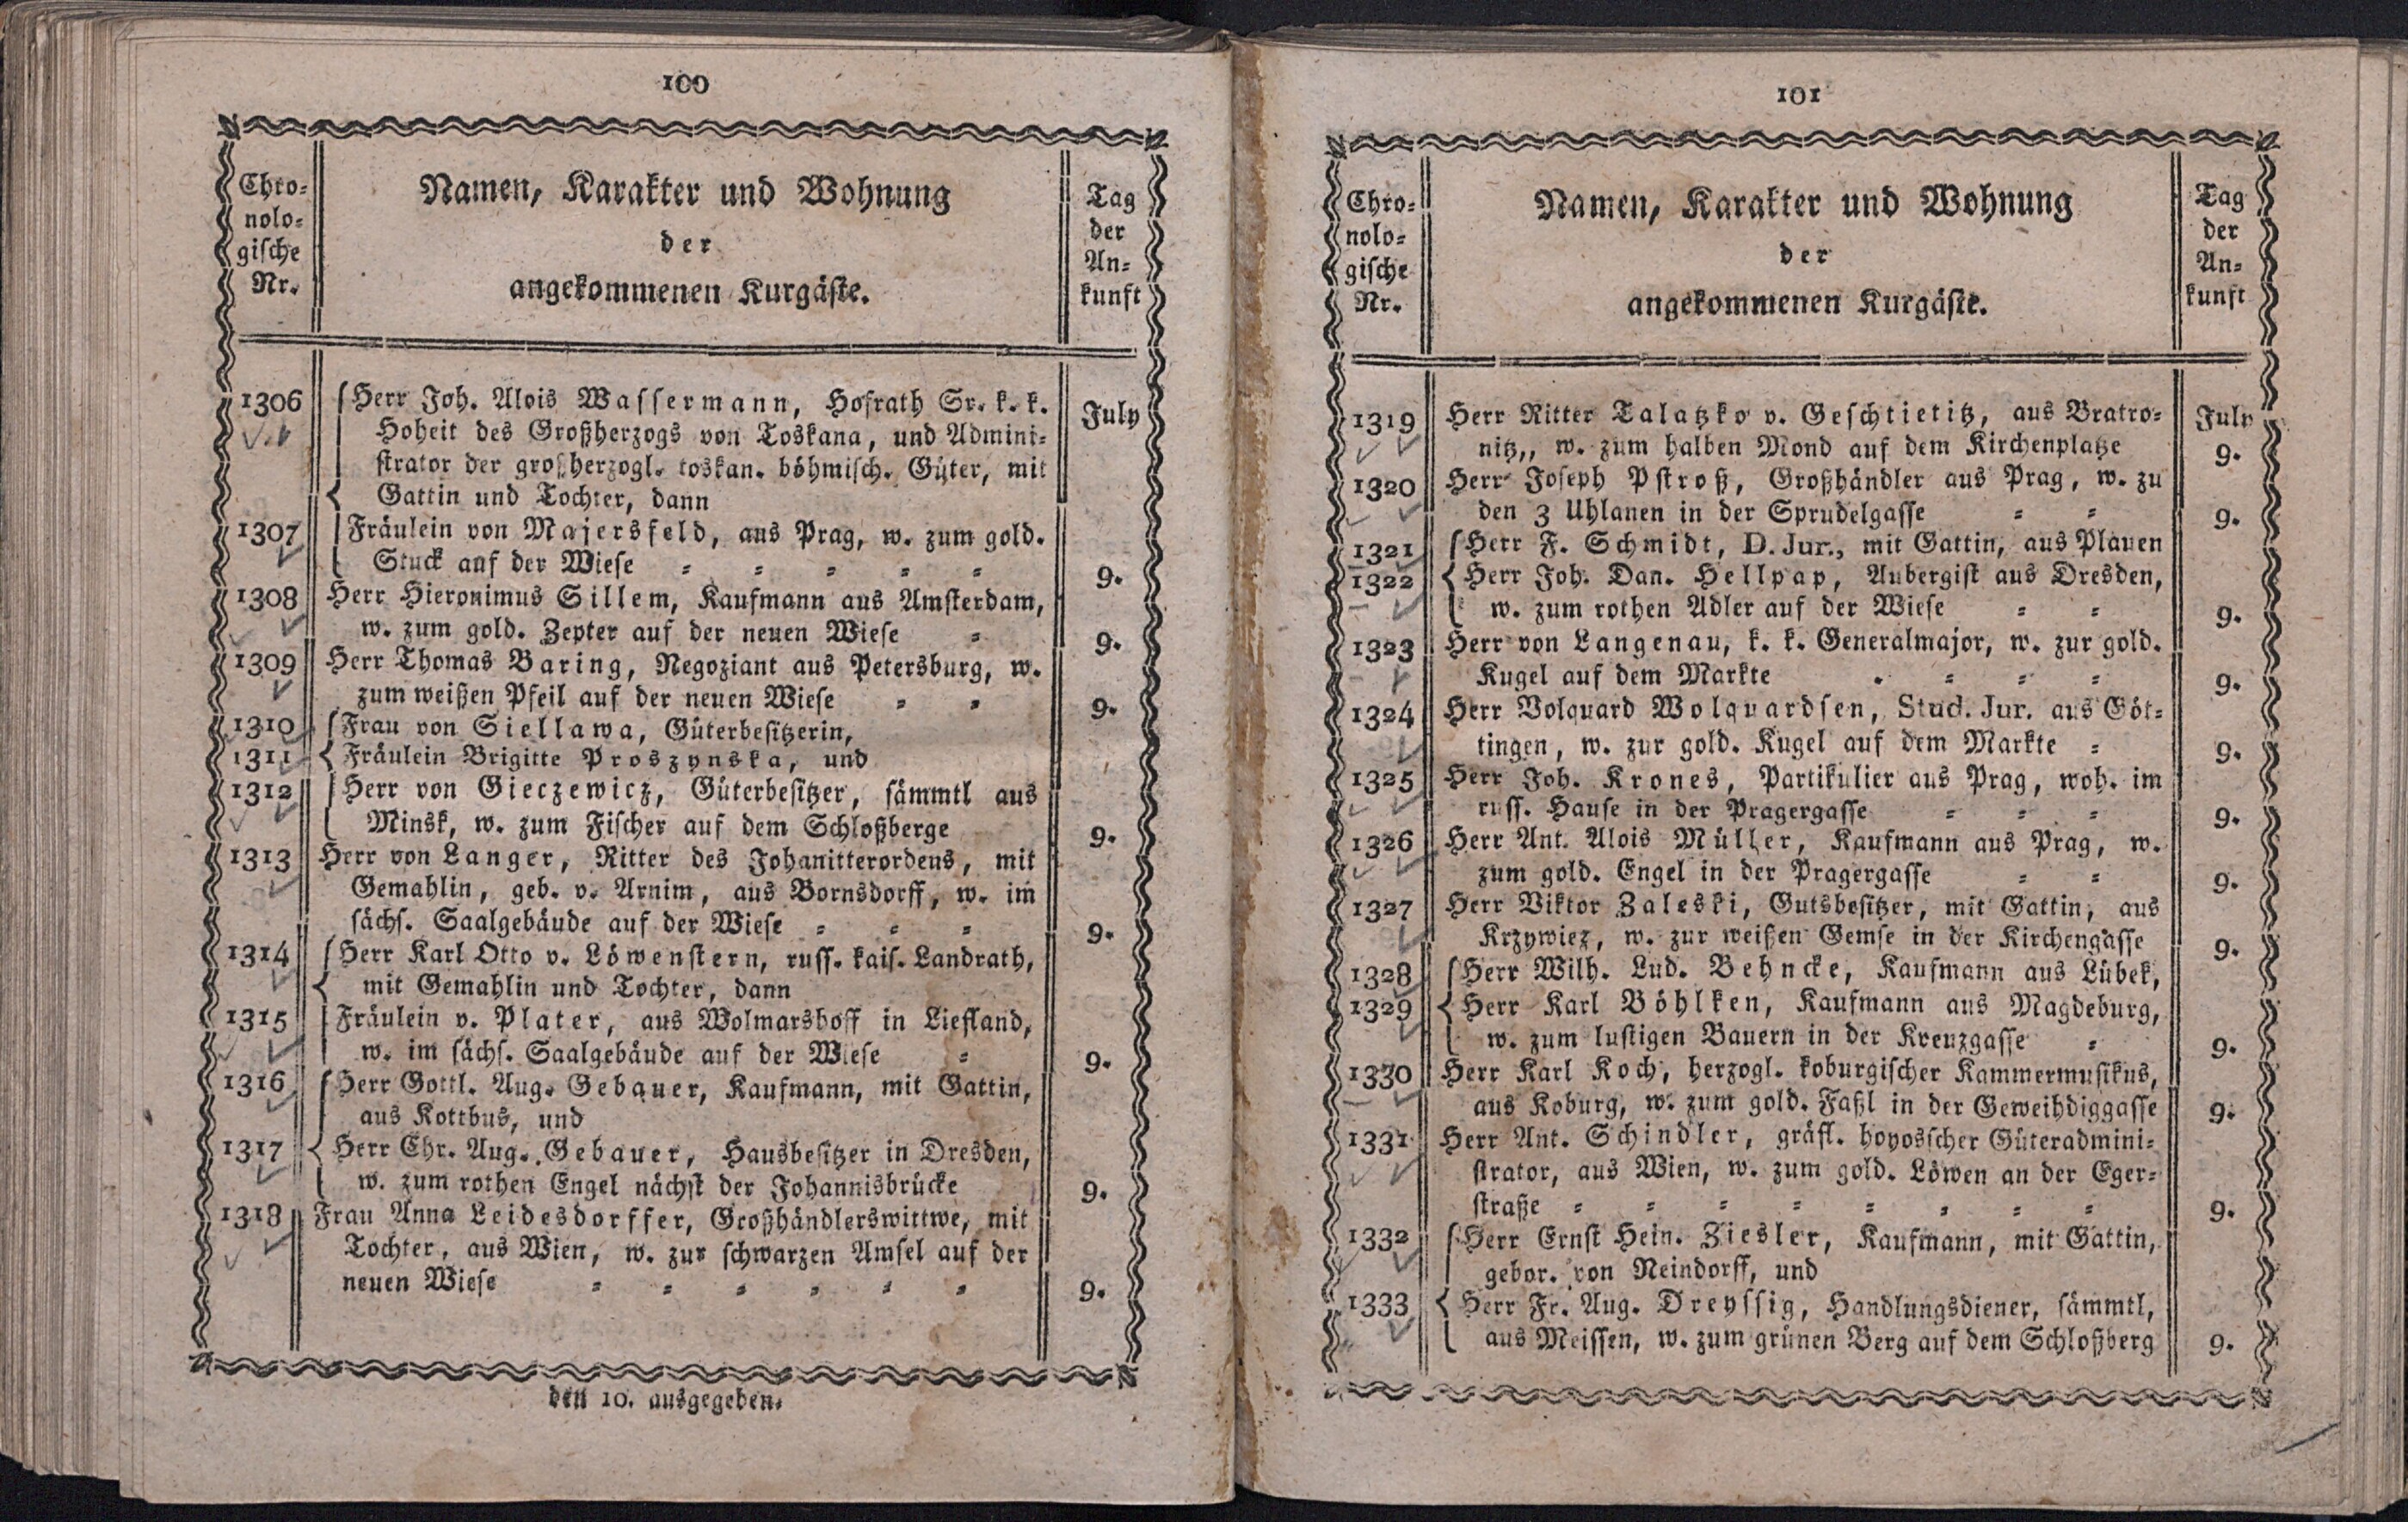 100
Chro-
nolo-
gische
Nr.
Namen, Karakter und Wohnung
der
angekommenen Kurgäste.
Tag
der
An-
kunft
1306 Herr Joh. Alois Wassermann, Hofrath Sr. k. k. July
Hoheit des Großherzogs von Toskana, und Admini-
strator der großherzogl. toskan. böhmisch. Güter, mit
Gattin und Tochter, dann
1307 Fräulein von Majersfeld, aus Prag, w. zum gold.
Stuck auf der Wiese - - - - - 9.
1308 Herr Hieronimus Sillem, Kaufmann aus Amsterdam,
w. zum gold. Zepter auf der neuen Wiese - 9.
1309 Herr Thomas Baring, Negoziant aus Petersburg, w.
zum weißen Pfeil auf der neuen Wiese - - 9.
1310 Frau von Siellawa, Güterbesitzerin,
1311 Fräulein Brigitte Proszynska, und
1312 Herr von Gieczewicz, Güterbesitzer, sämmtl aus
Minsk, w. zum Fischer auf dem Schloßberge 9.
1313 Herr von Langer, Ritter des Johanitterordens, mit
Gemahlin, geb. v. Arnim, aus Bornsdorff, w. im
sächs. Saalgebäude auf der Wiese - - - 9.
1314 Herr Karl Otto v. Löwenstern, russ. kais. Landrath,
mit Gemahlin und Tochter, dann
1315 Fräulein v. Plater, aus Wolmarshoff in Liefland,
w. im sächs. Saalgebäude auf der Wiese - 9.
1316 Herr Gottl. Aug. Gebauer, Kaufmann, mit Gattin,
aus Kottbus, und
1317 Herr Chr. Aug. Gebauer, Hausbesitzer in Dresden,
w. zum rothen Engel nächst der Johannisbrücke 9.
1318 Frau Anna Leidesdorffer, Großhändlerswittwe, mit
Tochter, aus Wien, w. zur schwarzen Amsel auf der
neuen Wiese - - - - - - 9.
den 10. ausgegeben.
101
Chro-
nolo-
gische
Nr.
Namen, Karakter und Wohnung
der
angekommenen Kurgäste.
Tag
der
An-
kunft
1319 Herr Ritter Talatzko v. Geschtietitz, aus Bratro- July
nitz,, w. zum halben Mond auf dem Kirchenplatze 9.
1320 Herr Joseph Pstroß, Großhändler aus Prag, w. zu
den 3 Uhlanen in der Sprudelgasse - - 9.
1321 Herr F. Schmidt, D. Jur., mit Gattin, aus Plauen
1322 Herr Joh. Dan. Hellpap, Aubergist aus Dresden,
w. zum rothen Adler auf der Wiese - - 9.
1323 Herr von Langenau, k. k. Generalmajor, w. zur gold.
Kugel auf dem Markte - - - - 9.
1324 Herr Volquard Wolquardsen, Stud. Jur. aus Göt-
tingen, w. zur gold. Kugel auf dem Markte - 9.
1325 Herr Joh. Krones, Partikulier aus Prag, woh. im
russ. Hause in der Pragergasse - - - 9.
1326 Herr Ant. Alois Müller, Kaufmann aus Prag, w.
zum gold. Engel in der Pragergasse - - 9.
1327 Herr Viktor Zaleski, Gutsbesitzer, mit Gattin, aus
Krzywiez, w. zur weißen Gemse in der Kirchengasse 9.
1328 Herr Wilh. Lud. Behncke, Kaufmann aus Lübek,
1329 Herr Karl Böhlken, Kaufmann aus Magdeburg,
w. zum lustigen Bauern in der Kreuzgasse - 9.
1330 Herr Karl Koch, herzogl. koburgischer Kammermusikus,
aus Koburg, w. zum gold. Faßl in der Geweihdiggasse 9.
1331 Herr Ant. Schindler, gräfl. hoyosscher Güteradmini-
strator, aus Wien, w. zum gold. Löwen an der Eger-
straße - - - - - - - - 9.
1332 Herr Ernst Hein. Ziesler, Kaufmann, mit Gattin,
gebor. von Neindorff, und
1333 Herr Fr. Aug. Dreyssig, Handlungsdiener, sämmtl,
aus Meissen, w. zum grünen Berg auf dem Schloßberg 9.